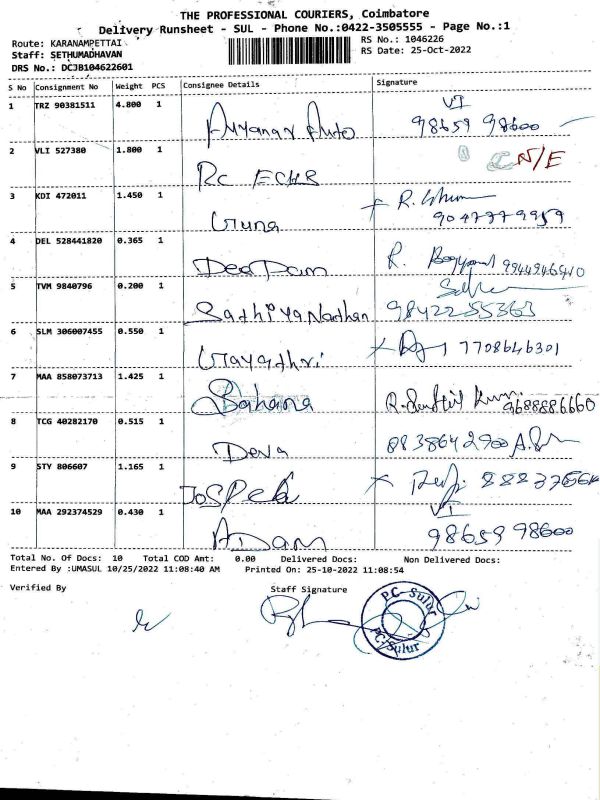 THE PROFESSIONAL COURIERS, Coimbatore
Delivery Runsheet - SUL - Phone No.:0422-3505555 - Page No.:1
Route: KARANAMPETTAI
Staff: SETHUMADHAVAN
DRS No.: DCJB104622601
RS No.: 1046226
RS Date: 25-Oct-2022
S No Consignment No Weight PCS Consignee Details Signature
1 TRZ 90381511 4.800 1 Ayyanar Auto VI 98659 98600
2 VLI 527380 1.800 1 N/E
3 KDI 472011 1.450 1 Guna R. 9047379959
4 DEL 528441820 0.365 1 R. 9944946940
5 TVM 9840796 0.200 1 Sathiyanathan 9842255363
6 SLM 306007455 0.550 1 Gayathri 7708646301
7 MAA 858073713 1.425 1 Sahana 9688886660
8 TCG 40282170 0.515 1 Deva
9 STY 806607 1.165 1
10 MAA 292374529 0.430 1 Adam VI 98659 98600
Total No. Of Docs: 10 Total COD Amt: 0.00 Delivered Docs: Non Delivered Docs:
Entered By :UMASUL 10/25/2022 11:08:40 AM Printed On: 25-10-2022 11:08:54
Verified By Staff Signature
PC-Sulur
PC-Sulur